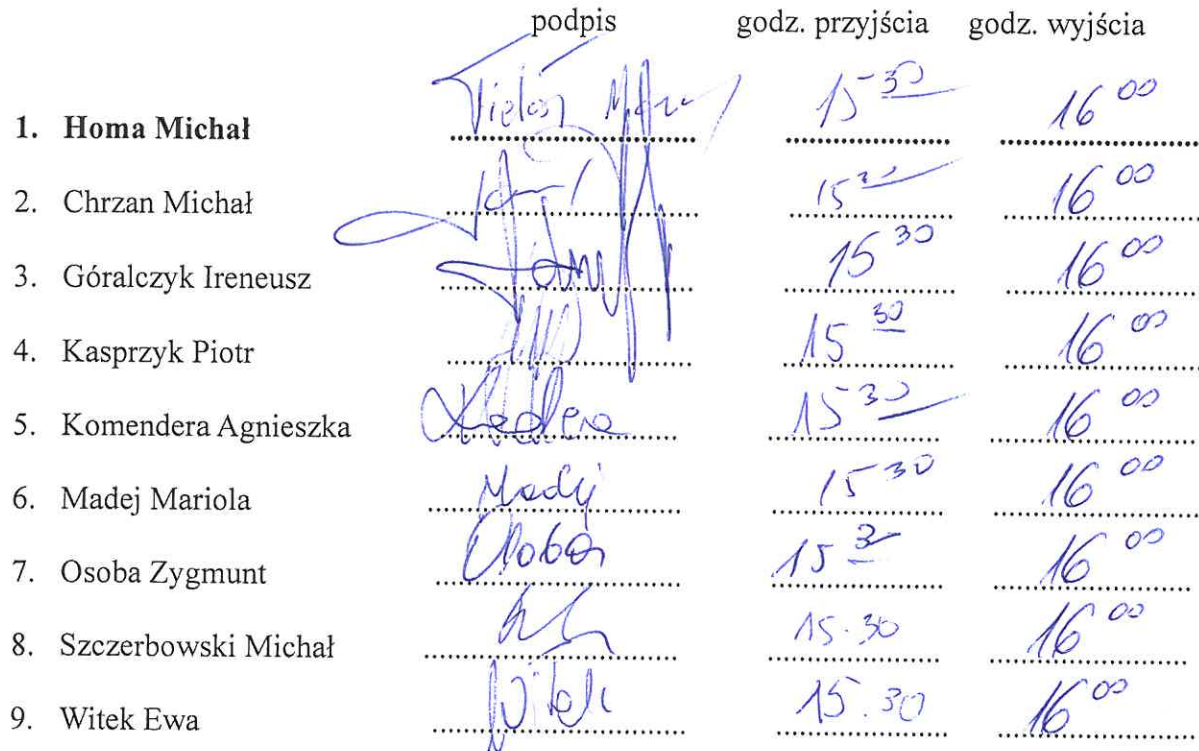 podpis godz. przyjścia godz. wyjścia
1. Homa Michał 15 30 16 00
2. Chrzan Michał 15 16 00
3. Góralczyk Ireneusz 15 30 16 00
4. Kasprzyk Piotr 15 30 16 00
5. Komendera Agnieszka 15 30 16 00
6. Madej Mariola Madej 15 30 16 00
7. Osoba Zygmunt Osoba 15 16 00
8. Szczerbowski Michał 15.30 16 00
9. Witek Ewa Witek 15.30 16 00